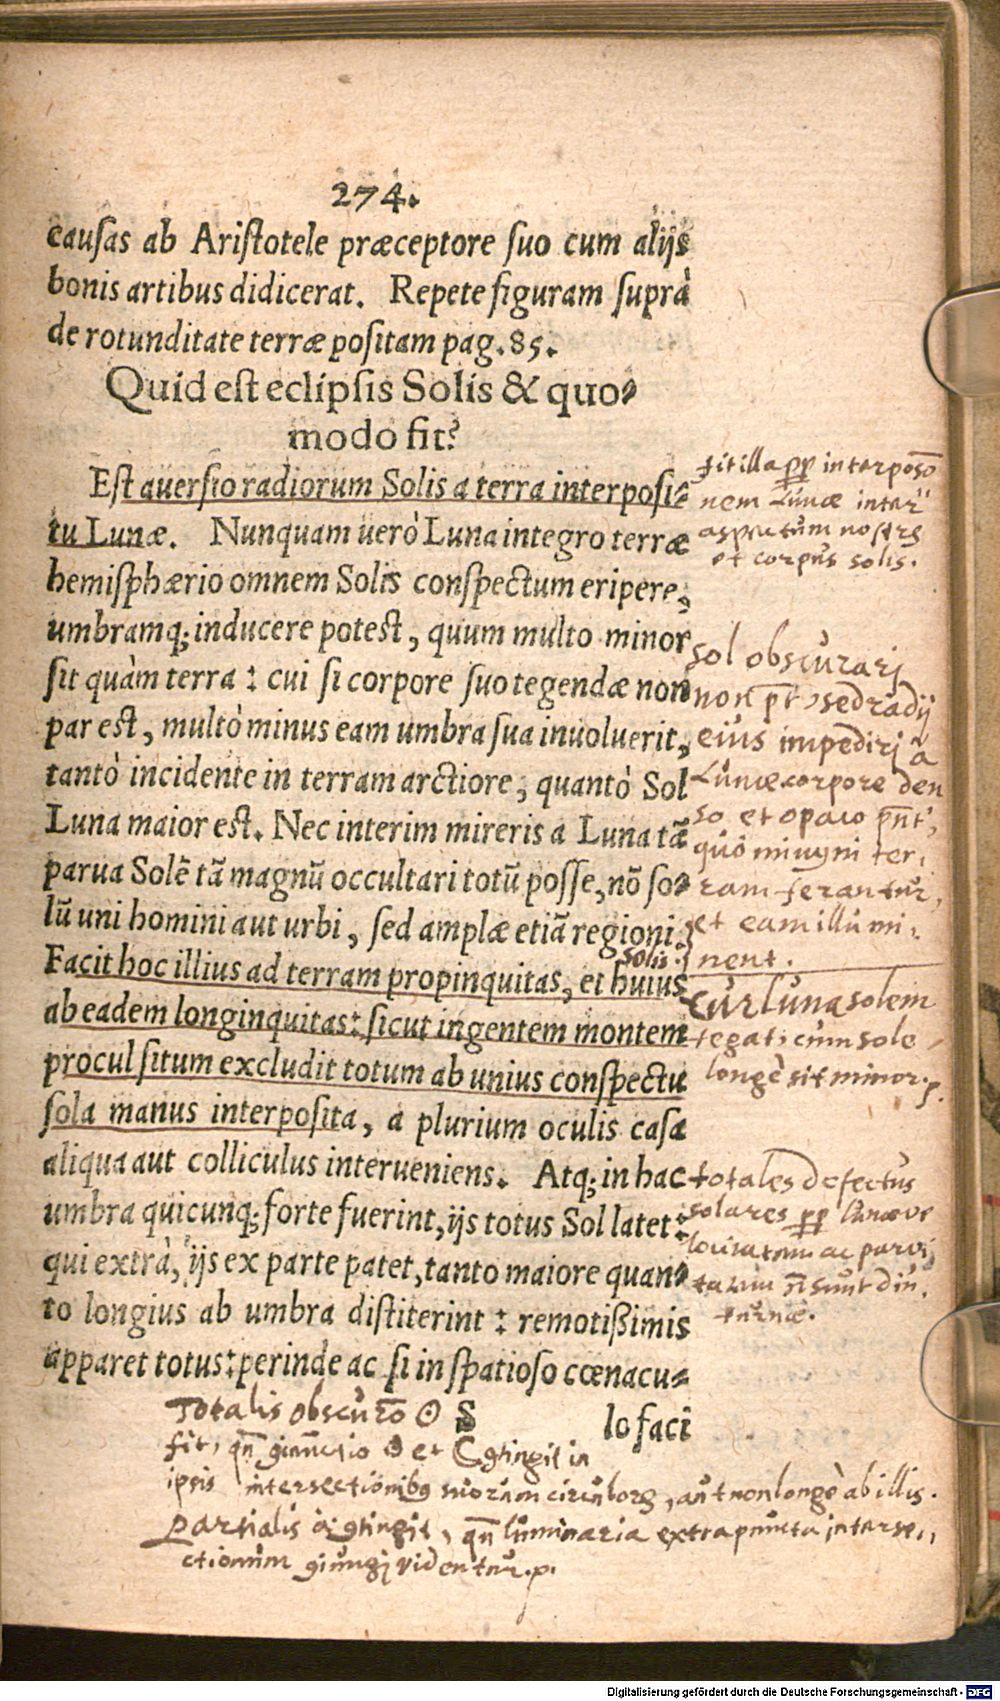 274.
causas ab Ariſtotele præceptore ſuo cum alijs
bonis artibus didicerat. Repete figuram ſuprà
de rotunditate terræ poſitam pag. 85.
Quid eſt eclipſis Solis & quo-
modo fit?
Eſt auerſio radiorum Solis a terra interpoſi-
tu Lunæ. Nunquam uerò Luna integro terræ
hemiſphærio omnem Solis conſpectum eripere,
umbramq; inducere poteſt, quum multo minor
ſit quàm terra : cui ſi corpore ſuo tegendæ non
par eſt, multò minus eam umbra ſua inuoluerit,
tantò incidente in terram arctiore, quantò Sol
Luna maior eſt. Nec interim mireris a Luna tã
parua Solẽ tã magnũ occultari totũ poſſe, nõ ſo-
lũ uni homini aut urbi, ſed amplæ etiã regioni.
solis.
Facit hoc illius ad terram propinquitas, et huius
ab eadem longinquitas: ſicut ingentem montem
procul ſitum excludit totum ab unius conſpectu
ſola manus interpoſita, a plurium oculis caſa
aliqua aut colliculus interueniens. Atq; in hac
umbra quicunq; forte fuerint, ijs totus Sol latet:
qui extrà, ijs ex parte patet, tanto maiore quan-
to longius ab umbra diſtiterint : remotißimis
apparet totus: perinde ac ſi in ſpatioſo cœnacu-
S lo faci
fit illa pp interposõ
nem Lunæ inter
aspectum nostrũ
et corpus solis.
sol obscurari
non pt, sed radij
eius impediri à
Lunæ corpore den
so et opaco
quò minus in ter-
ram ferantur,
et eam illumi-
nent.
Cur luna solem
tegat, cum sole
longè sit minor.
totales defectus
solares pp lunæ ve
locitatem ac parvi
tatem sunt diu
turnæ.
Totalis obscurõ ☉
fit, qñ ☉ et ☾ in
ipsis intersectionibus suorum circulorũ, aut non longè ab illis.
Partialis qñ luminaria extra puncta interse-
ctionum videntur.